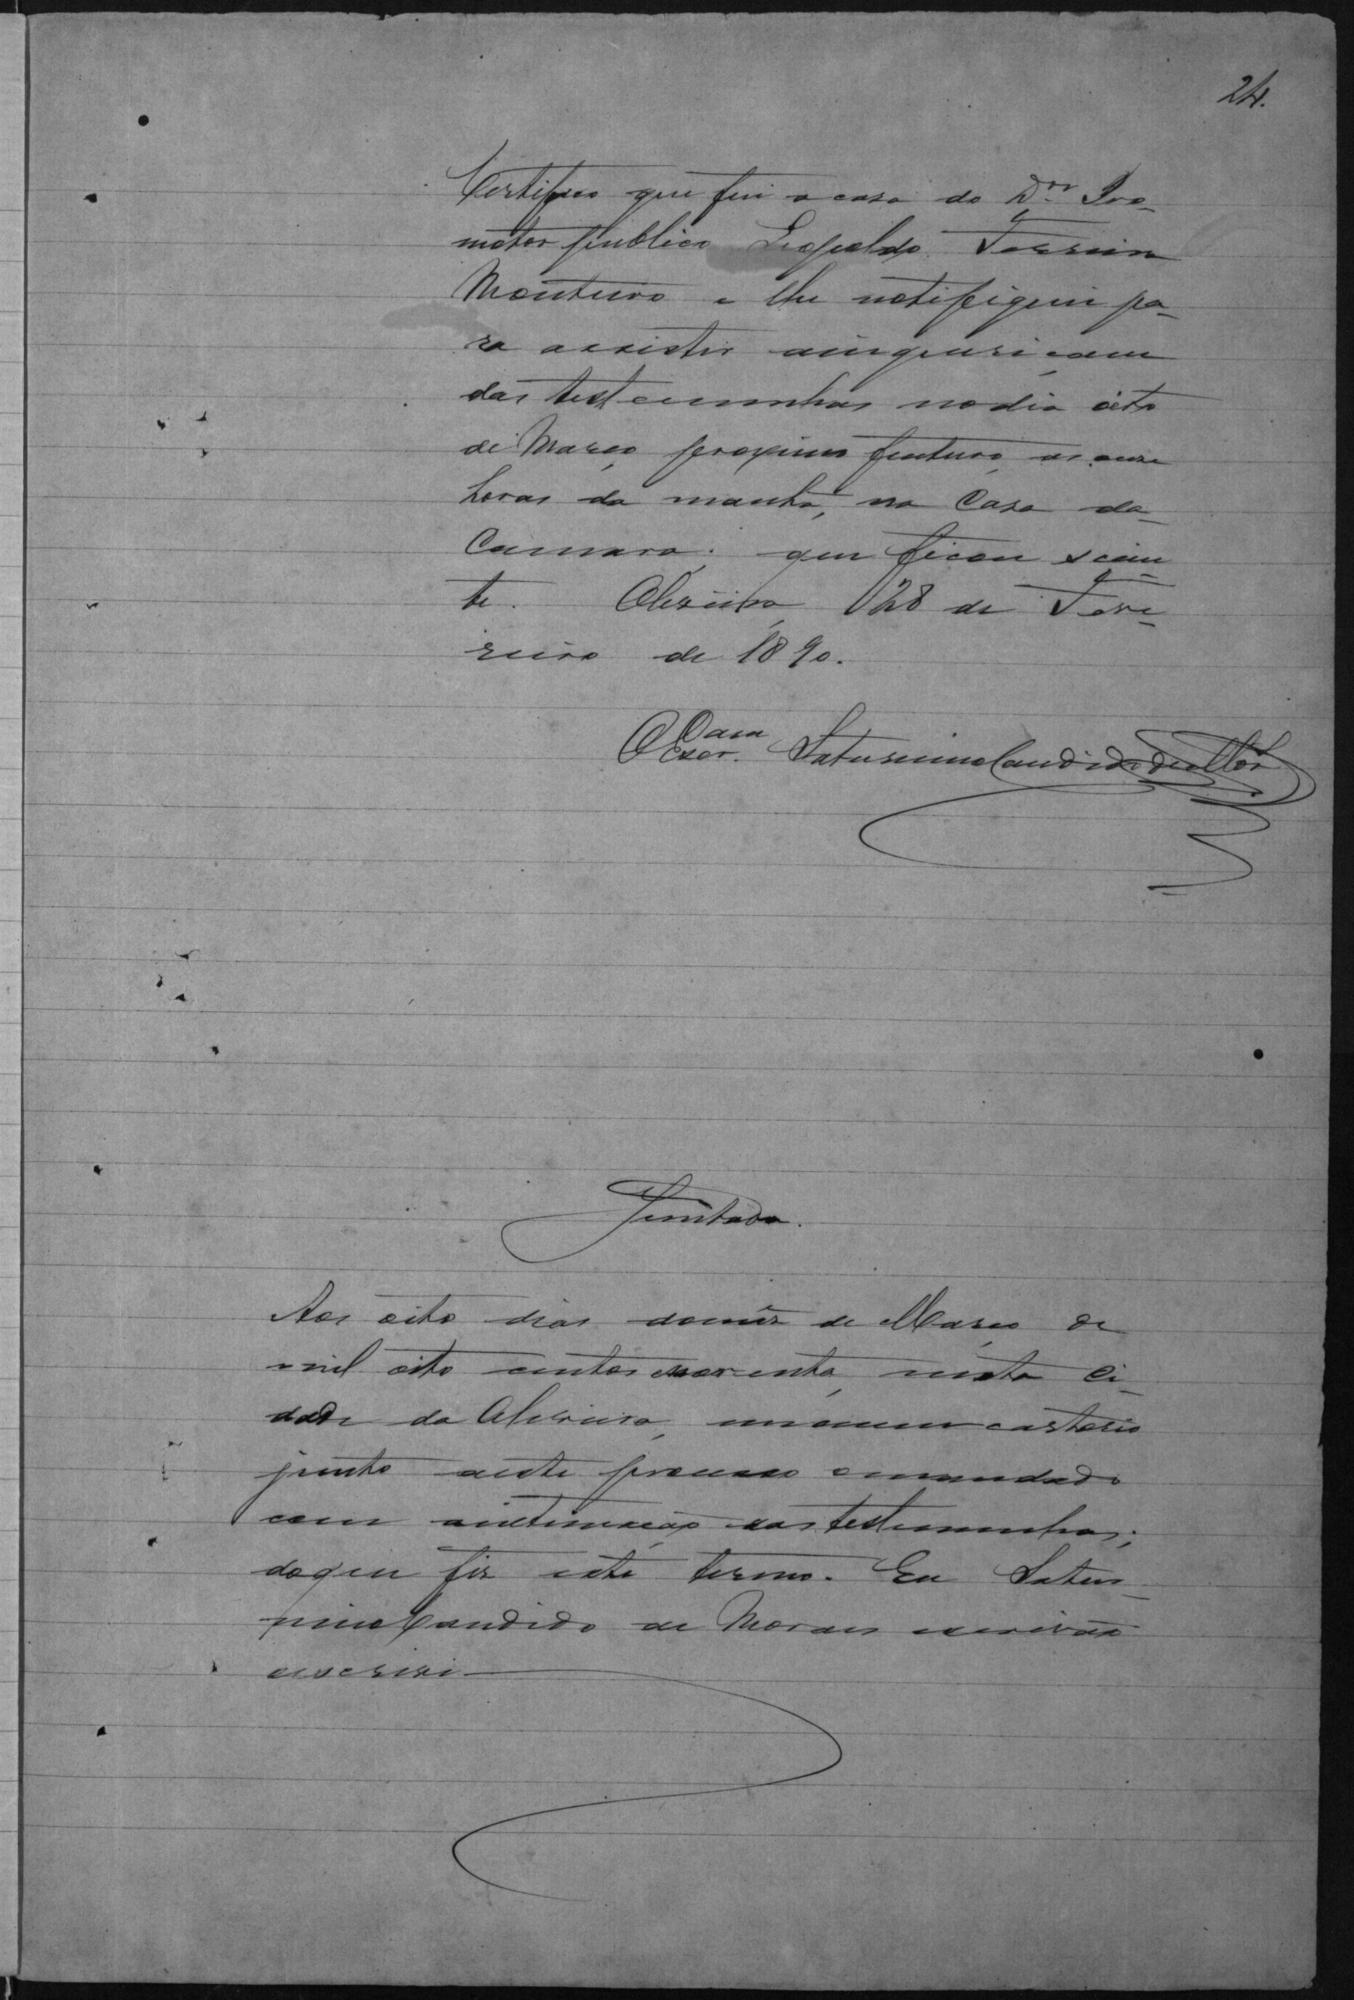 24.
Certifico que fui a casa do Dr. Pro-
motor publico Leopoldo Ferreira
Monteiro e lhe notifiquei pa-
ra assistir ainquericam
das testemunhas nodia oito
de Março proximo futuro, as onze
horas da manhã, na Casa da
Camara; que ficou scien
te. Oliveira, 28 de Feve-
reiro de 1890.
O Escr. Saturnino Candido de Mor
Juntada.
Aos oito dias domês de Março de
mil oito centos enoventa, nesta Ci-
dade da Oliveira, em meu cartorio
junto aeste processo omandado
com aintimação das testemunhas;
doque fiz este termo. Eu Satur-
nino Candido de Moraes escrivão
escrevi